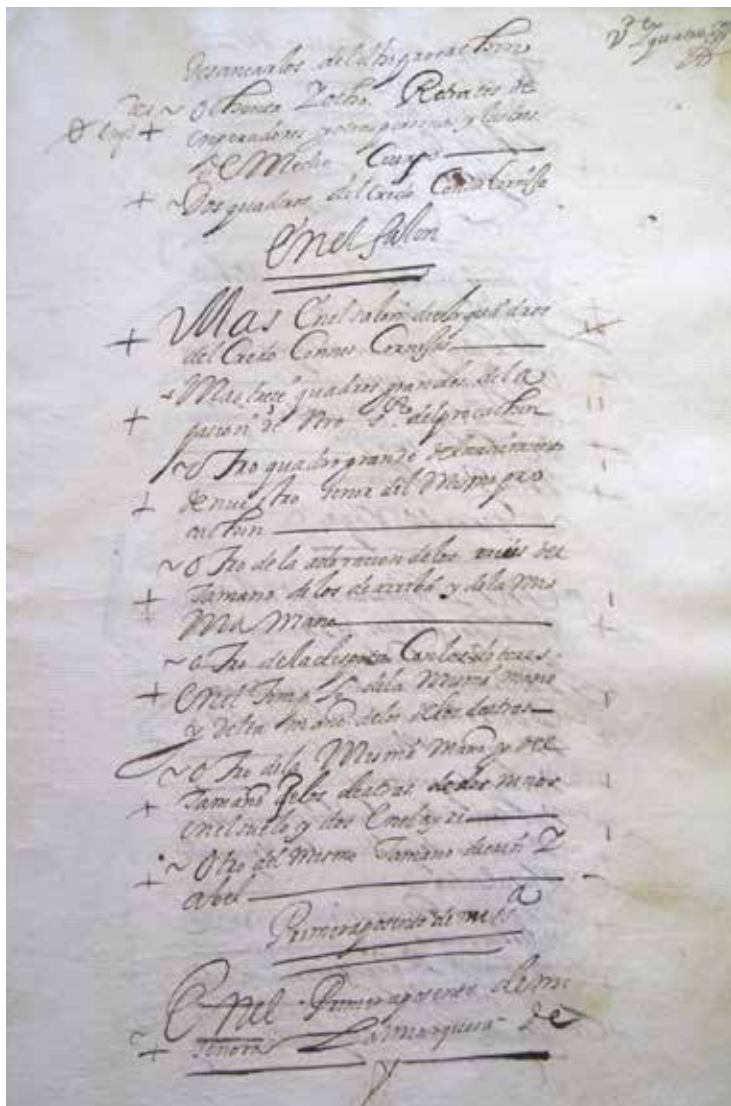 de san carlos del dho procachin
~ Ochenta y ocho Retratos de
+ emperadores y otras personas yllustres
de Medio Cuerpo
+ ~ Dos quadros del Credo Con cornisa
En el salon
+ Mas En el salon doce quadros
del Credo Con sus Cornisas
+ ~ Mas trece quadros grandes de la
pasion de Nro Sr del procachin
~ Otro quadro grande del nacimiento
+ de nuestro senor del Mismo pro
cachin
~ Otro de la adoracion de los reies del
+ Tamano de los de arriba y de la mis
Ma Mano
~ Otro de la disputa Con los doctores
+ En el Templo de la Misma mano
y del tamano de los de los de atras
~ Otro de la Misma Mano y del
+ Tamano de los de atras de dos ninos
en el suelo y dos En el ayre
+ ~ Otro del Mismo Tamano de cain y
abel
Primer aposento de mi sa
En el Primer aposento de mi
+ senora La Marquesa de